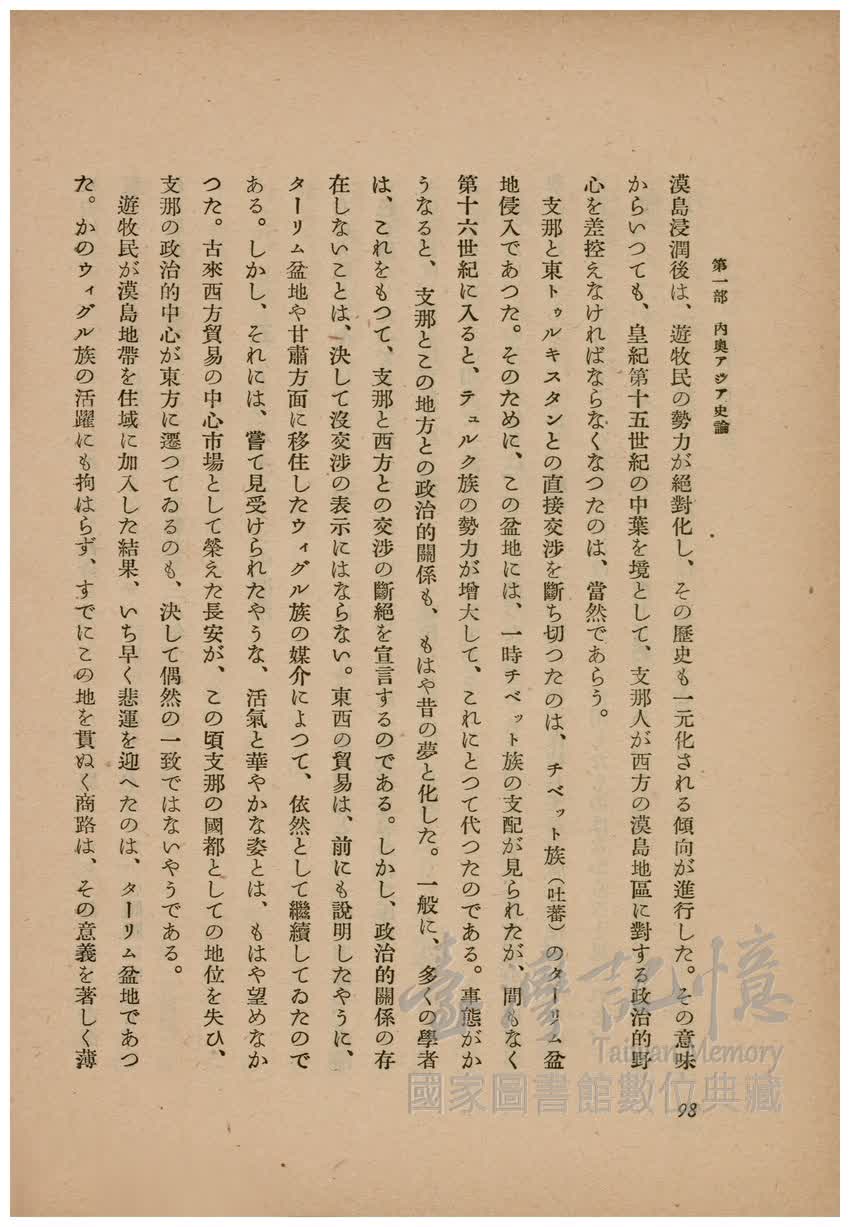 第一部　內奥アジア史論
漠島浸潤後は、遊牧民の勢力が絕對化し、その歷史も一元化される傾向が進行した。その意味
からいつても、皇紀第十五世紀の中葉を境として、支那人が西方の漠島地區に對する政治的野
心を差控えなければならなくなつたのは、當然であらう。
　支那と東トゥルキスタンとの直接交涉を斷ち切つたのは、チベット族（吐蕃）のターリム盆
地侵入であつた。そのために、この盆地には、一時チベット族の支配が見られたが、間もなく
第十六世紀に入ると、テュルク族の勢力が增大して、これにとつて代つたのである。事態がか
うなると、支那とこの地方との政治的關係も、もはや昔の夢と化した。一般に、多くの學者
は、これをもつて、支那と西方との交涉の斷絕を宣言するのである。しかし、政治的關係の存
在しないことは、決して沒交涉の表示にはならない。東西の貿易は、前にも說明したやうに、
ターリム盆地や甘肅方面に移住したウィグル族の媒介によつて、依然として繼續してゐたので
ある。しかし、それには、嘗て見受けられたやうな、活氣と華やかな姿とは、もはや望めなか
つた。古來西方貿易の中心市場として榮えた長安が、この頃支那の國都としての地位を失ひ、
支那の政治的中心が東方に遷つてゐるのも、決して偶然の一致ではないやうである。
　遊牧民が漠島地帶を住域に加入した結果、いち早く悲運を迎へたのは、ターリム盆地であつ
た。かのウィグル族の活躍にも拘はらず、すでにこの地を貫ぬく商路は、その意義を著しく薄
98
臺灣記憶
Taiwan Memory
國家圖書館數位典藏